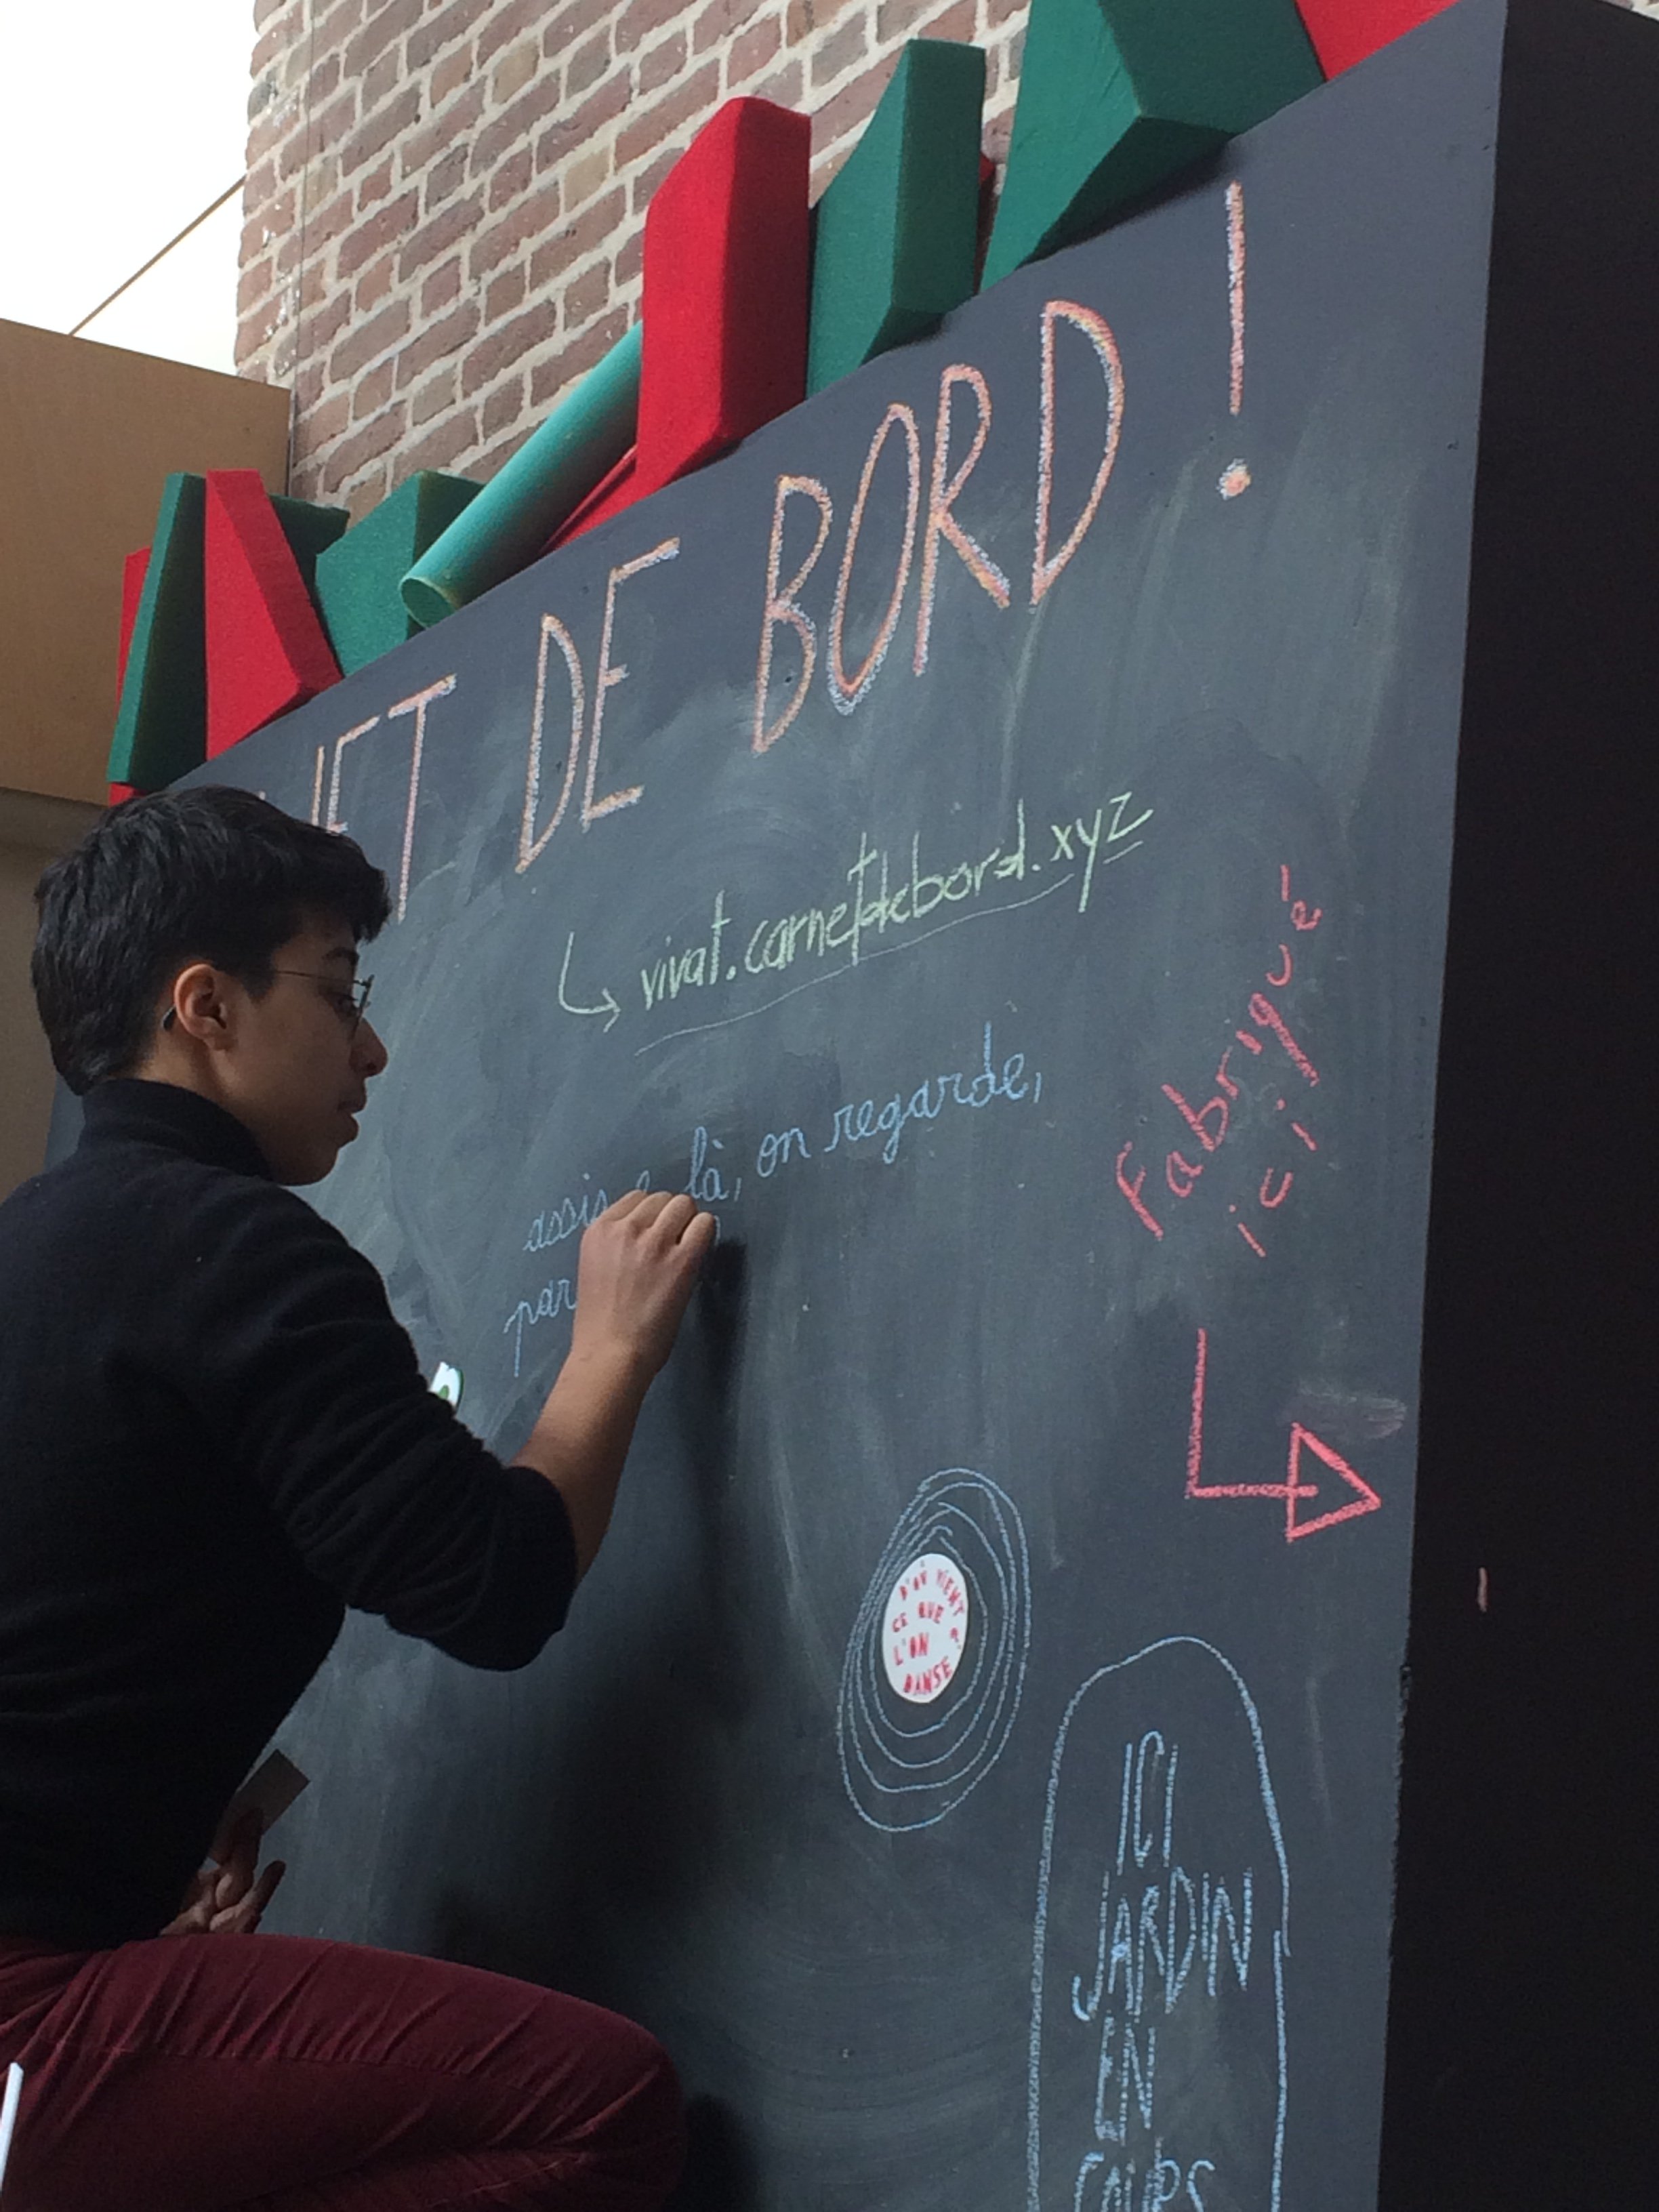 ET DE BORD !
vivat.carnetdebord.xyz
là, on regarde,
par
fabriqué
ici
D'OÙ VIENT
CE QUE
L'ON
DANSE ?
ICI
JARDIN
EN
COURS